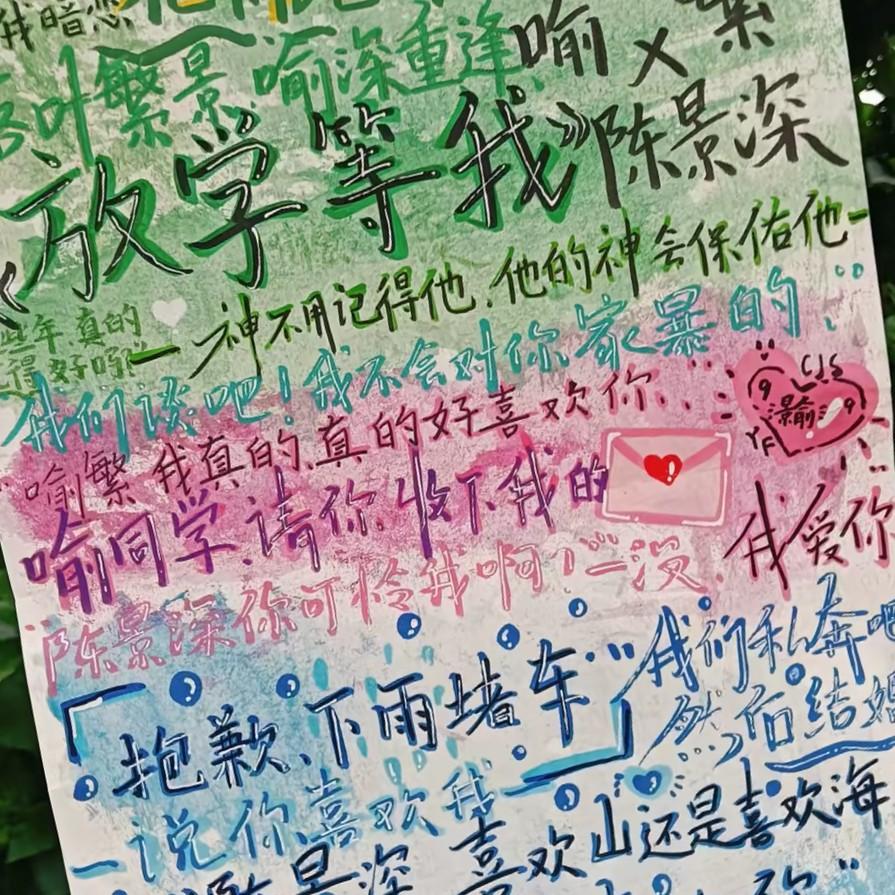 我暗恋
叶繁景 喻深重逢
喻 x 繁
《放学等我》陈景深
一 神不用记得他，他的神会保佑他一
些年真的
得好吗
我们谈吧！我不会对你家暴的
喻繁 我真的、真的好喜欢你
CJS
9 景喻 9
YF
喻同学,请你收下我的
我爱你
陈景深你可怜我啊 一没
「抱歉、下雨堵车」
我们私奔吧
然后结婚
一说你喜欢我
喜欢山还是喜欢海
景深